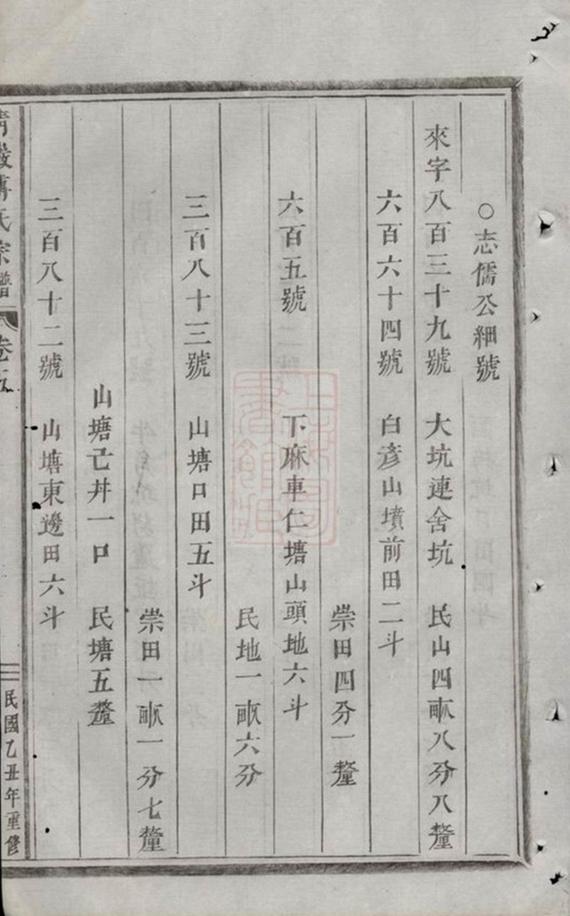 ○志儒公細號
來字八百三十九號 大坑連舍坑 民山四畝八分八釐
六百六十四號 白彥山墳前田二斗
崇田四分一釐
六百五號 下麻車仁塘山頭地六斗
民地一畝六分
三百八十三號 山塘口田五斗
崇田一畝一分七釐
山塘亡井一口 民塘五釐
三百八十二號 山塘東邊田六斗
氏宗譜 卷五
民國乙丑年重修